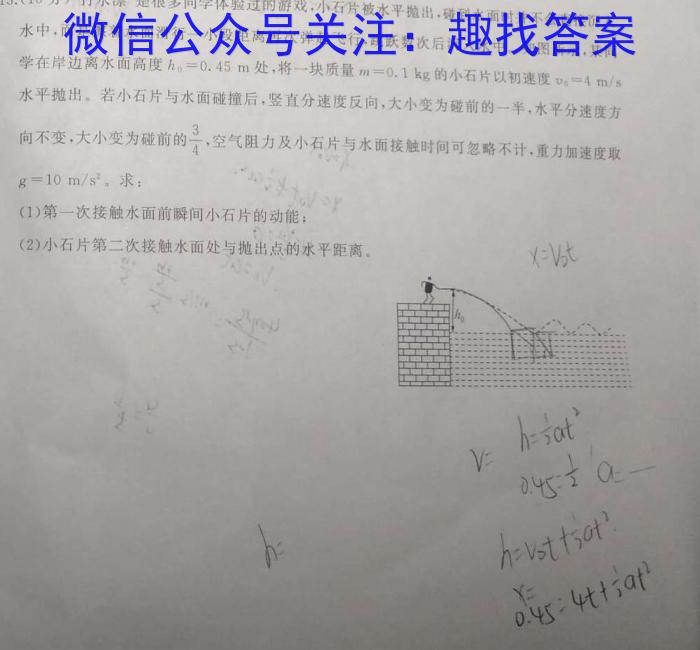 13.(10分)"打水漂"是很多同学体验过的游戏,小石片被水平抛出,碰到水面时
微信公众号关注：趣找答案
水中,
学在岸边离水面高度h₀=0.45 m处,将一块质量m=0.1 kg的小石片以初速度v₀=4 m/s
水平抛出。若小石片与水面碰撞后,竖直分速度反向,大小变为碰前的一半,水平分速度方
向不变,大小变为碰前的3/4,空气阻力及小石片与水面接触时间可忽略不计,重力加速度取
g=10 m/s²。求:
(1)第一次接触水面前瞬间小石片的动能;
(2)小石片第二次接触水面处与抛出点的水平距离。
x=v₀t
h₀
V=
h=½at²
0.45=½
a=
h=
h=v₀t+½at²
x=
0.45=4t+½at²